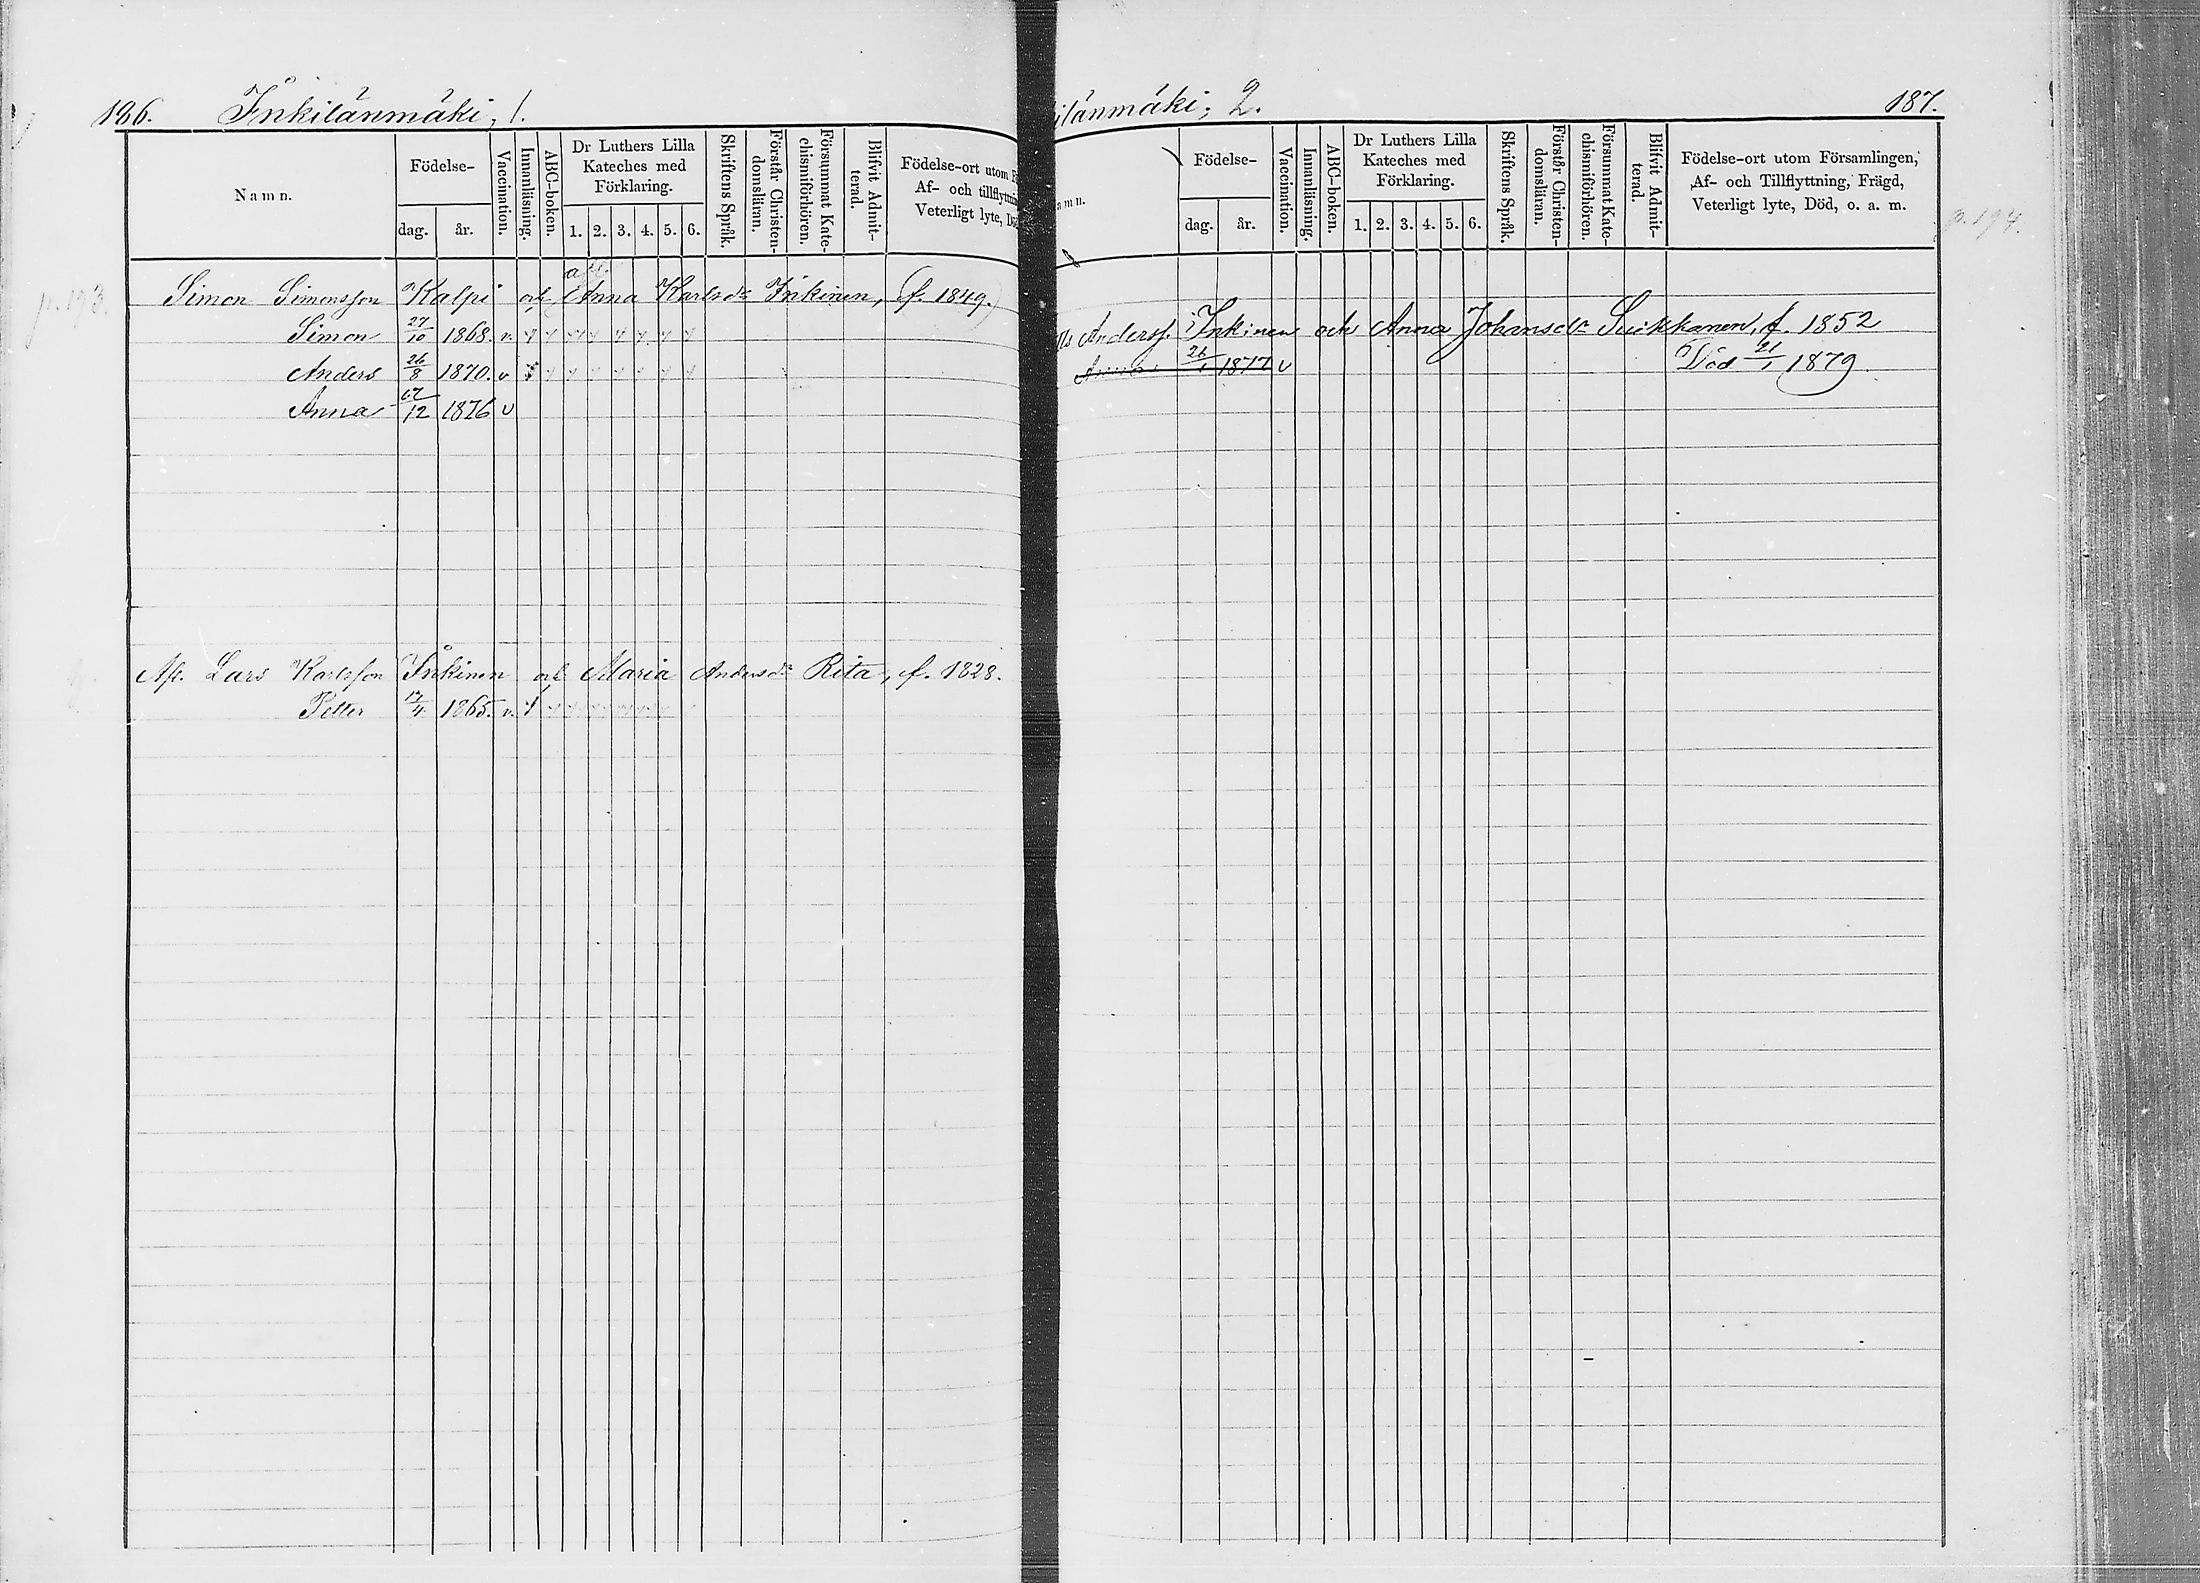 186. Inkilänmäki, 1.
Namn.
Födelse-
dag.
år.
Vaccination.
Innanläsning.
ABC-boken.
Dr Luthers Lilla
Kateches med
Förklaring.
1. 2. 3. 4. 5. 6.
Skriftens Språk.
Förstår Christen-
domsläran.
Försummat Kate-
chismiförhören.
Blifvit Admit-
terad.
Födelse-ort utom
Af- och tillflyttni
Veterligt lyte,
p. 193.
Simon Simonsson Kalpi och Anna Karlsdr Inkinen, f. 1849.
Simon 27/10 1868. v.
Anders 26/8 1870. v
Anna 12 1876 v
Afl. Lars Karlsson Inkinen och Maria Andersdr Rita, f. 1828.
Petter 17/4 1865. v.
ilänmäki, 2. 187.
amn.
Födelse-
dag.
år.
Vaccination.
Innanläsning.
ABC-boken.
Dr Luthers Lilla
Kateches med
Förklaring.
1. 2. 3. 4. 5. 6.
Skriftens Språk.
Förstår Christen-
domsläran.
Försummat Kate-
chismiförhören.
Blifvit Admit-
terad.
Födelse-ort utom Församlingen,
Af- och Tillflyttning, Frägd,
Veterligt lyte, Död, o. a. m.
p. 194.
Anderss. Inkinen och Anna Johansdr Suikkanen, f. 1852
26/1 1877 v Död 21/1 1879.